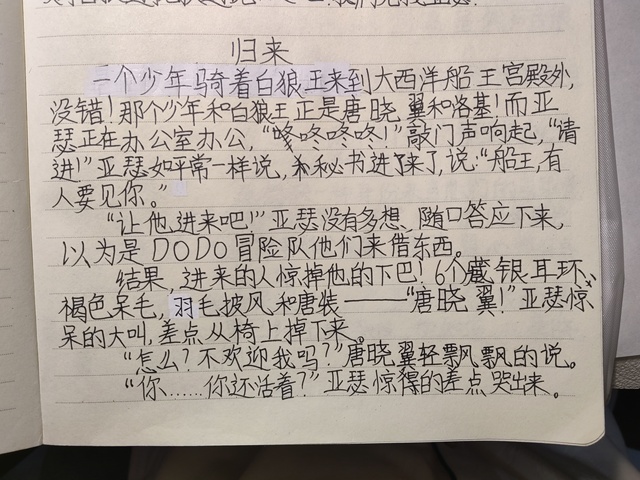 归来
一个少年骑着白狼王来到大西洋船王宫殿外,
没错!那个少年和白狼王正是唐晓翼和洛基!而亚
瑟正在办公室办公,“咚咚咚咚!”敲门声响起,“请
进!”亚瑟如平常一样说,秘书进了来了,说:“船王,有
人要见你。”
“让他进来吧!”亚瑟没有多想、随口答应下来,
以为是DODO冒险队他们来借东西。
结果,进来的人惊掉他的下巴!6个藏银耳环、
褐色呆毛,羽毛披风和唐装——“唐晓翼!”亚瑟惊
呆的大叫,差点从椅上掉下来。
“怎么?不欢迎我吗?”唐晓翼轻飘飘的说。
“你……你还活着?”亚瑟惊得的差点哭出来。